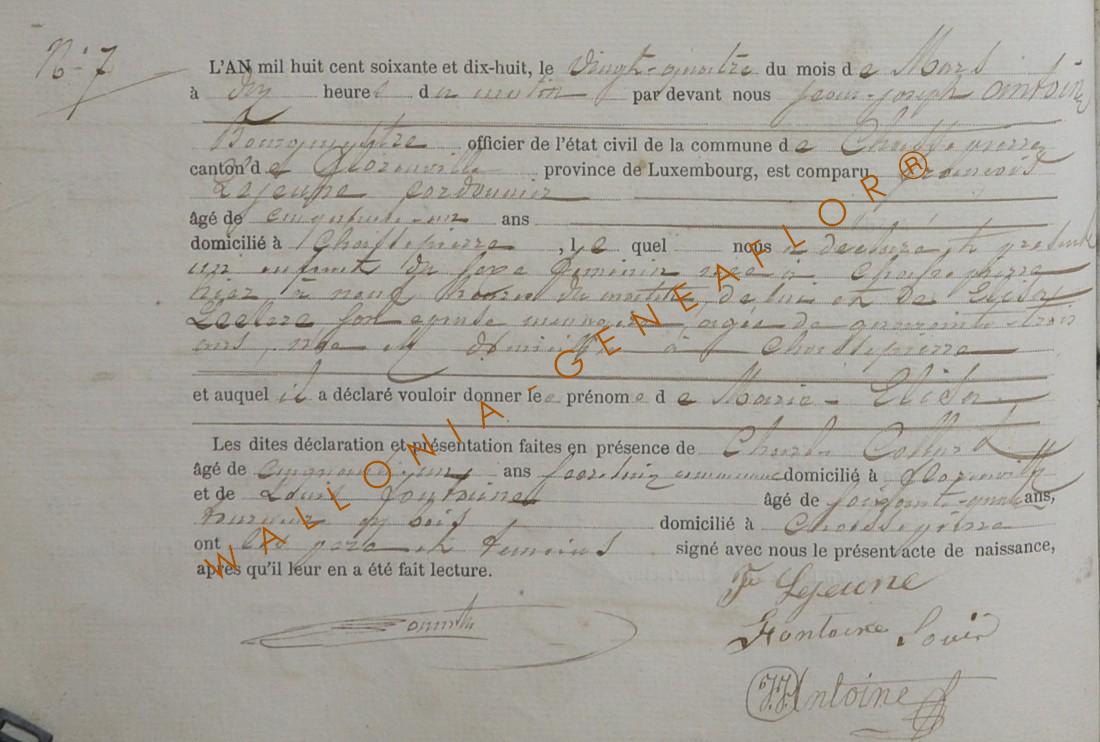 N° 7
L'AN mil huit cent soixante et dix-huit, le vingt-quatre du mois de Mars
à dix heures du matin par devant nous Jean-Joseph Antoine
Bourgmestre officier de l'état civil de la commune de Chassepierre
canton de Florenville province de Luxembourg, est comparu François
Lejeune cordonnier
âgé de cinquante-un ans
domicilié à Chassepierre, lequel nous a déclaré et présenté
un enfant du sexe féminin née à Chassepierre
hier à neuf heures du matin, de lui et de Elisa
Leclere son épouse ménagère, âgée de quarante-trois
ans, née et domiciliée à Chassepierre
et auquel il a déclaré vouloir donner les prénoms de Marie-Elisa
Les dites déclaration et présentation faites en présence de Charles
âgé de ans domicilié à Florenville
et de Louis Fontaine âgé de ans,
domicilié à Chassepierre
ont les père et témoins signé avec nous le présent acte de naissance,
après qu'il leur en a été fait lecture.
Lejeune
Fontaine Louis
JJAntoine
WALLONIA-GENEAFLOR®